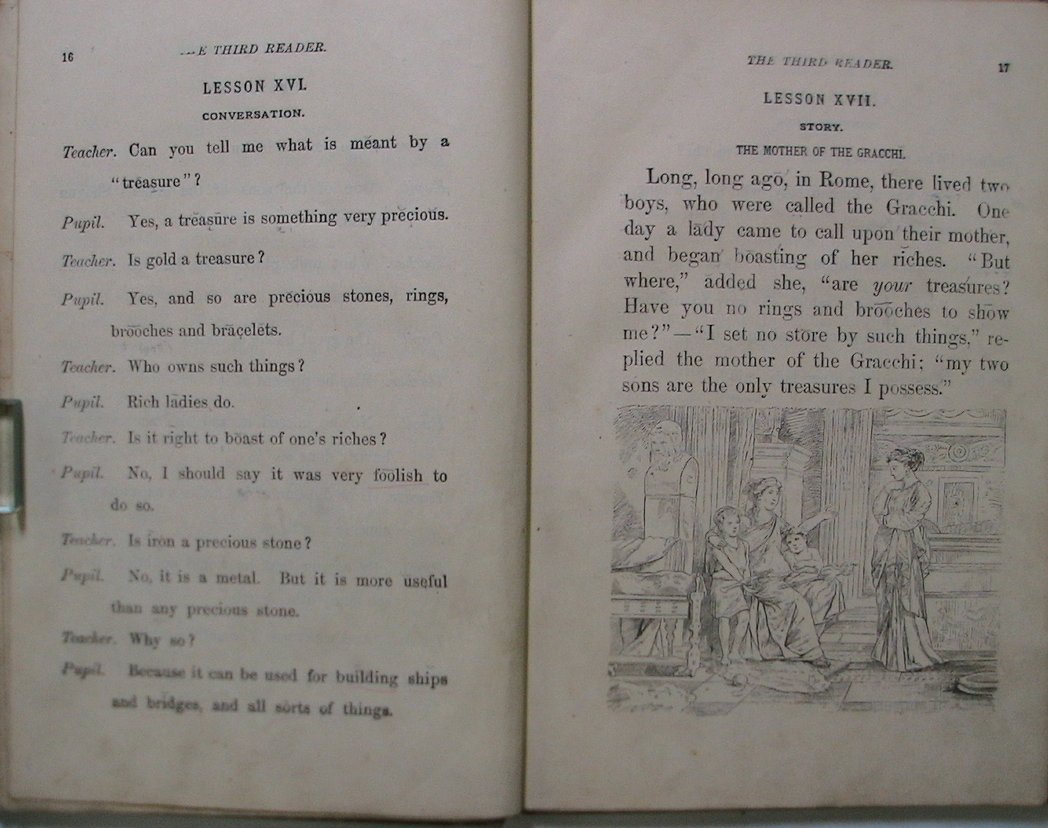 16
THE THIRD READER.
LESSON XVI.
CONVERSATION.
Teacher. Can you tell me what is mēant by a
"trĕasure"?
Pupil. Yes, a trĕasūre is something very prĕcious.
Teacher. Is gold a treasure?
Pupil. Yes, and so are prĕcious stones, rings,
brōōches and brāçelĕts.
Teacher. Who owns such things?
Pupil. Rich lādies do.
Teacher. Is it right to bōast of one's riches?
Pupil. No, I should say it was very foolish to
do so.
Teacher. Is iron a precious stone?
Pupil. No, it is a metal. But it is more useful
than any precious stone.
Teacher. Why so?
Pupil. Because it can be used for building ships
and bridges, and all sorts of things.
THE THIRD READER.
17
LESSON XVII.
STORY.
THE MOTHER OF THE GRACCHI.
Long, long agō, in Rome, there lived two
boys, who were called the Gracchi. One
day a lādy came to call upon their mother,
and began bōasting of her riches. "But
where," added she, "are your treasures?
Have you no rings and brōōches to shōw
me?"—"I set no stōre by such things," re-
plied the mother of the Gracchi; "my two
sons are the only treasures I possess."